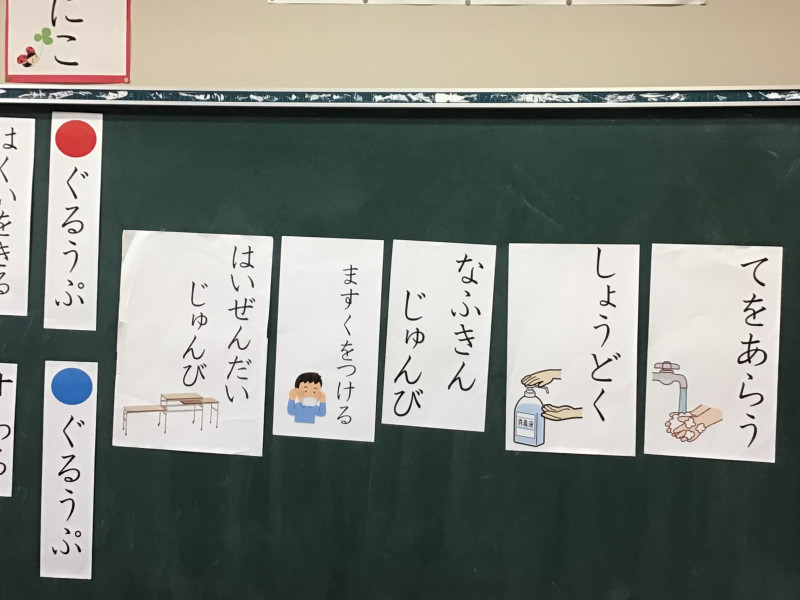 てをあらう
しょうどく
消毒液
なふきん
じゅんび
ますくをつける
はいぜんだい
じゅんび
ぐるうぷ
ぐるうぷ
はくいをきる
にこ